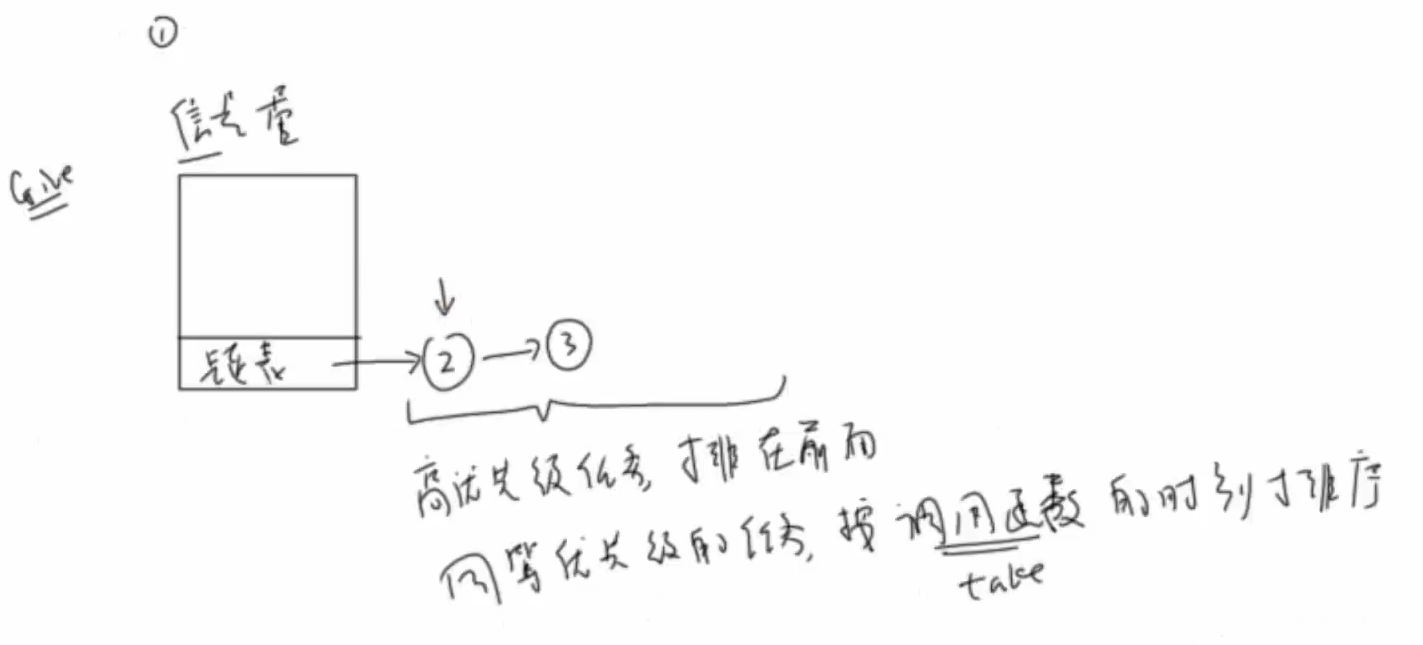 ①
信号量
Give
链表
② ③
高优先级任务, 排在前面
同等优先级的任务, 按调用函数的时刻排序
take